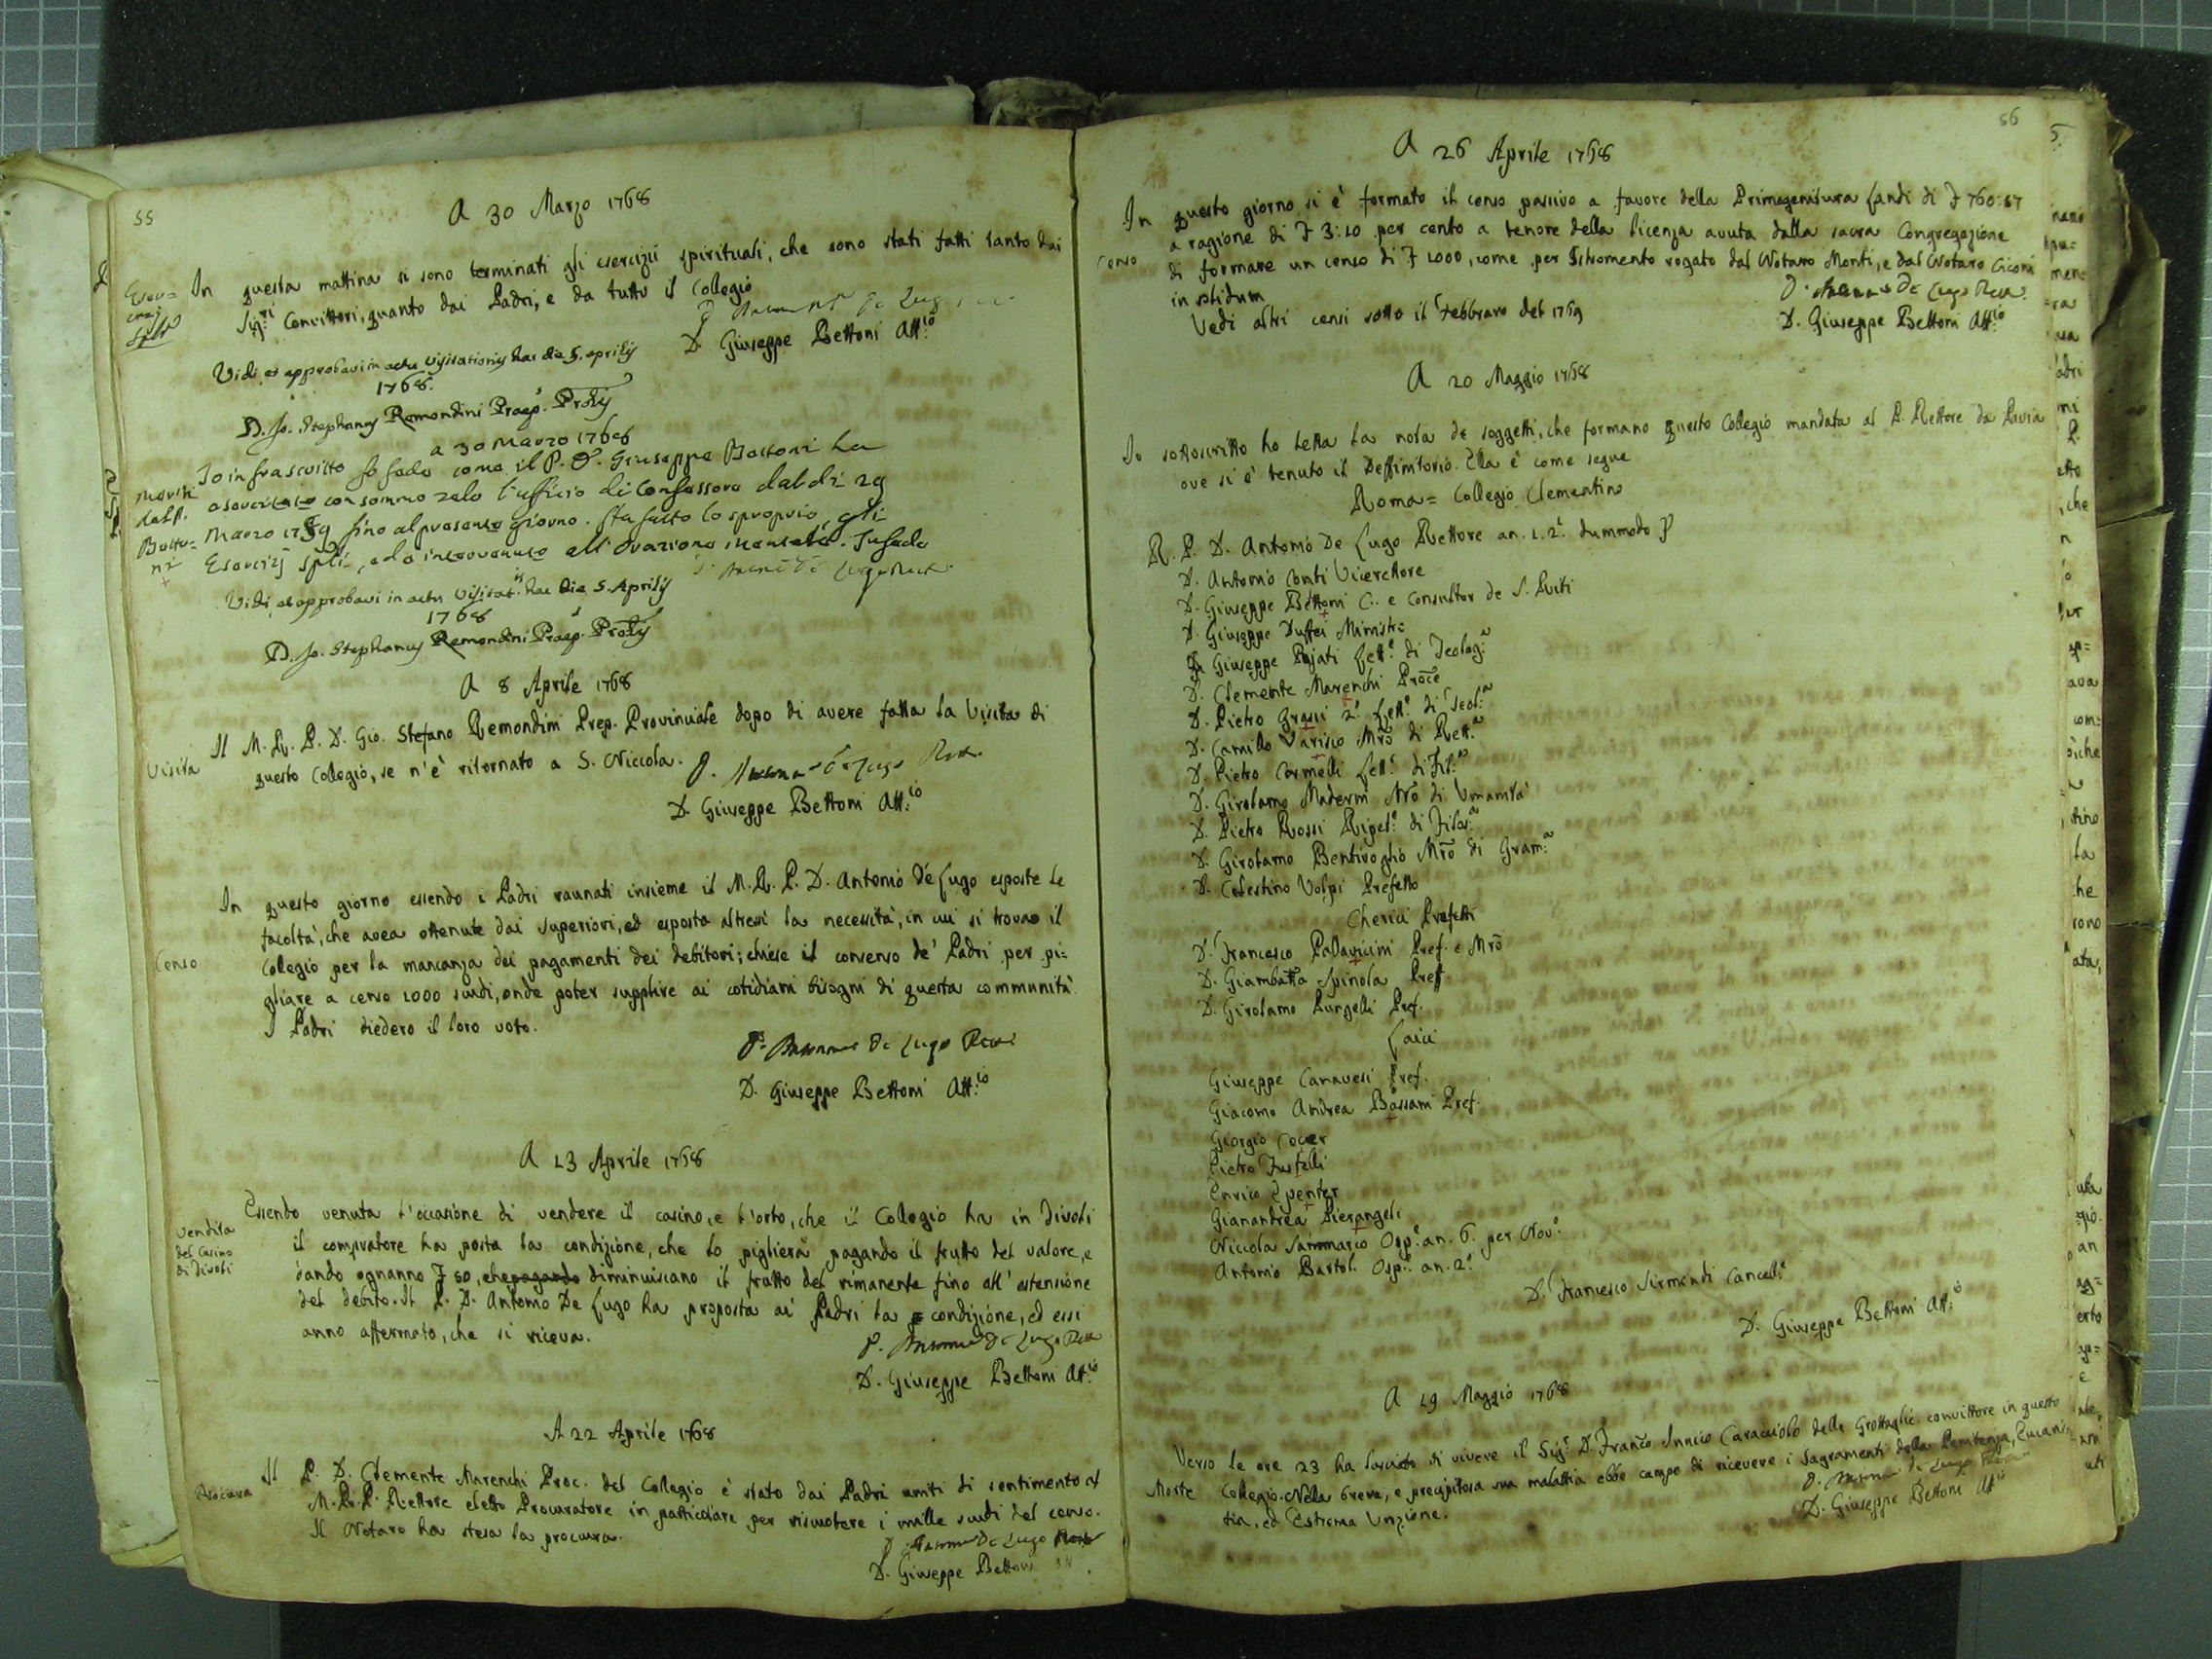 55
A 30 Marzo 1768
In questa mattina si sono terminati gli esercizii spirituali, che sono stati fatti tanto dai
Sig:ri Convittori, quanto dai Padri, e da tutto il Collegio
D. Giuseppe Bettoni Att:io
Vidi et approbavi in actu Visitationis hac die 5. aprilis
1768.
D. Jo. Stephanus Remondini Praep. Prolis
a 30 Marzo 1768
Io infrascritto fo fede come il P. D. Giuseppe Bettoni ha
esercitato con sommo zelo l'uffizio di Confessore dal di 29
Marzo 1759 fino al presente giorno. Ha fatto lo sproprio, gli
Esercizj spli, ed è intervenuto all'Orazione mentale. In fede
Vidi et approbavi in actu Visitat.is hac die 5. Aprilis
1768
D. Jo. Stephanus Remondini Praep. Prolis
A 8 Aprile 1768
Visita
Il M. R. P. D. Gio. Stefano Remondini Prep. Provinciale dopo di avere fatta la Visita di
questo Collegio, se n'è ritornato a S. Niccola.
D. Giuseppe Bettoni Att:io
In questo giorno essendo i Padri raunati insieme il M. R. P. D. Antonio de Lugo espose le
facoltà, che avea ottenute dai Superiori, ed esposta altresì la necessità, in cui si trova il
Censo
Collegio per la mancanza dei pagamenti dei debitori; chiese il consenso de' Padri per pi=
gliare a censo 1000 scudi, onde poter supplire ai cotidiani bisogni di questa communità
I Padri diedero il loro voto.
P. Antonio de Lugo Rett
D. Giuseppe Bettoni Att:io
A 13 Aprile 1768
Vendita
del Casino
di Tivoli
Essendo venuta l'occasione di vendere il casino, e l'orto, che il Collegio ha in Tivoli
il compratore ha posta la condizione, che lo piglierà pagando il frutto del valore, e
dando ognanno 50, che pagando diminuiscano il frutto del rimanente fino all'estensione
del debito. Il P. D. Antonio De Lugo ha proposta ai Padri la condizione, ed essi
anno affermato, che si riceva.
P. Antonio de Lugo Rett
D. Giuseppe Bettoni Att:io
A 22 Aprile 1768
Procura
Il P. D. Clemente Marenchi Proc. del Collegio è stato dai Padri uniti di sentimento al
M. R. P. Rettore eletto Procuratore in particolare per riscuotere i mille scudi del censo.
Il Notaro ha stesa la procura.
P. Antonio de Lugo Rett
D. Giuseppe Bettoni
56
A 26 Aprile 1768
In questo giorno si è formato il censo passivo a favore della Primogenitura Landi di 760:67
Censo
a ragione di 3:10 per cento a tenore della licenza avuta dalla sacra Congregazione
di formare un censo di 1000, come per Istromento rogato dal Notaro Monti, e dal Notaro Ciconi
in solidum
Vedi altri censi sotto il Febbraro del 1769
P. Antonio De Lugo Rett.
D. Giuseppe Bettoni Att:io
A 20 Maggio 1768
Io sottoscritto ho letta la nota de soggetti, che formano questo Collegio mandata al P. Rettore da Pavia
ove si è tenuto il Deffinitorio. Ella è come segue
Roma = Collegio Clementino
R. P. D. Antonio De Lugo Rettore an. 1. 2.
D. Antonio Conti Vicerettore
D. Giuseppe Bettoni C. e Consultor de S. Riti
D. Giuseppe Duffei Ministro
D. Giuseppe Pujati Lett.e di Teolog:a
D. Clemente Marenchi Proce
D. Pietro Grassi 2° Lett.e di Teol:a
D. Camillo Varisco Mro di Rett.a
D. Pietro Carmelli Lett.e di Fil:a
D. Girolamo Maderni Mro di Umanità
D. Pietro Rossi Ripet.e di Filos:a
D. Girolamo Bentivoglio Mro di Gram:a
D. Celestino Volpi Prefetto
Cherici Prefetti
D. Francesco Pallavicini Pref. e Mro
D. Giambatta Spinola Pref.
D. Girolamo Pungelli Pref.
Laici
Giuseppe Canavesi Pref.
Giacomo Andrea Bassani Pref.
Giorgio Cocer
Pietro Fustelli
Enrico Zpenter
Gianandrea Pierangeli
Niccola Sanmarco Osp.e an. 6. per Nov.e
Antonio Bartol. Osp.e an. 2.
D. Francesco Sirmondi Cancell.e
D. Giuseppe Bettoni Att:io
A 19 Maggio 1768
Verso le ore 23 ha lasciato di vivere il Sig.r D. Franco Innico Caracciolo delle Grottaglie convittore in questo
Morte
Collegio. Nella breve, e precipitosa sua malattia ebbe campo di ricevere i Sagramenti della Penitenza, Eucaris
tia, ed Estrema Unzione.
D. Giuseppe Bettoni Att:io